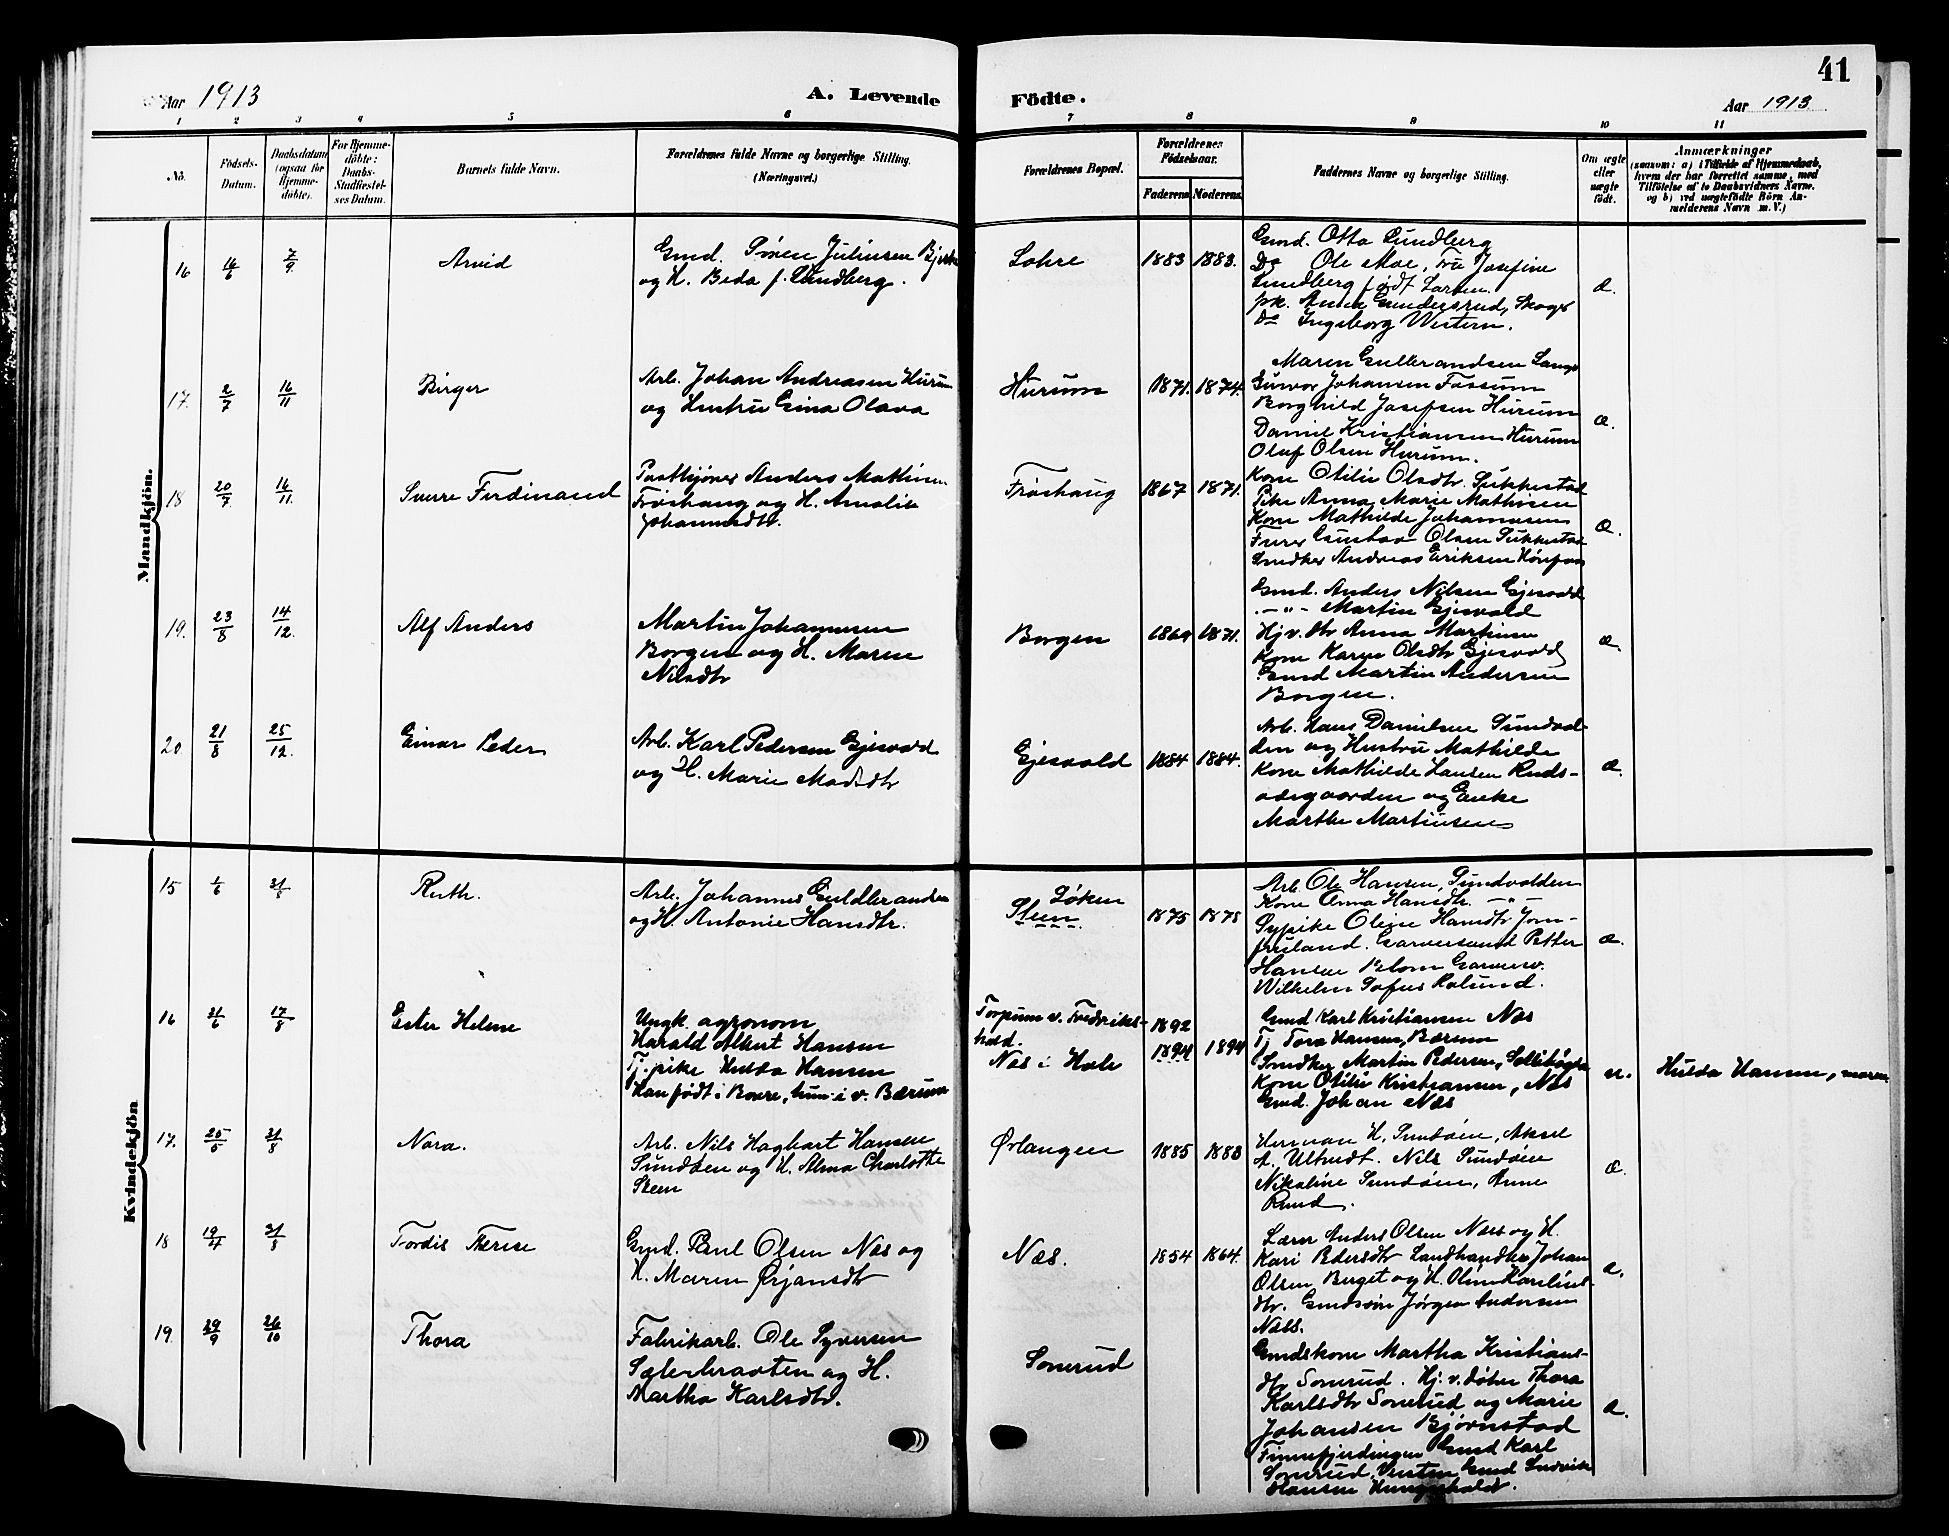 41
Aar 1913
A. Levende
Födte.
Aar 1913
1 2 3 4 5 6 7 8 9 10 11
No.
Födsels-
Datum.
Daabsdatum
(ogsaa for
Hjemme-
döbte).
For Hjemme-
döbte:
Daabs-
Stadfæstel-
ses Datum.
Barnets fulde Navn.
Forældrenes fulde Navne og borgerlige Stilling.
(Næringsvei.)
Forældrenes Bopæl.
Forældrenes
Födselsaar.
Faderens
Moderens
Faddernes Navne og borgerlige Stilling.
Om ægte
eller
uægte
födt.
Anmærkninger
(saasom: a) i Tilfælde af Hjemmedaab,
hvem der har forrettet samme, med
Tilföielse af to Daabsvidners Navne.
og b) ved uægtefödte Börn An-
melderens Navn m. V.)
Mandkjön.
16
7/9
Arvid
Gmd. Sören Juliusen
og H. Beda f. Lundberg.
Lohre
1883 1883.
Gmd. Otto Lundberg
Do Ole Moe, Fru Josefine
Lundberg født Larsen.
pk. Anna Gundersrud, Skoger
Do Ingeborg Western.
æ.
17.
2/7
16/11
Birger
Arb. Johan Andreasen Hurum
og Hustru Gina Olava
Hurum
1871. 1874.
Maren Gulbrandsen
Gunvor Johansen Fossum
Borghild Josefsen Hurum
Daniel Kristiansen Hurum
Oluf Olsen Hurum.
æ.
18
20/7
16/11.
Sverre Ferdinand
Anders Mathisen
Frøshaug og H. Amalie
Johannesdtr.
Frøshaug
1867 1871.
Kone Otilie Olsdtr. Sukkestad
Pike Anna Marie Mathisen
Kone Mathilde Johannesen
Gustav Olsen Sukkestad
Snedker Andreas Eriksen Hönefoss
æ.
19.
23/8
14/12.
Alf Anders
Martin Johannesen
Borgen og H. Maren
Nilsdtr
Borgen
1869 1871.
Gmd. Anders Nilsen Gjesvold
- " - Martin Gjesvold
Hjv. dtr Anna Martinsen
Kone Karen Olsdtr Gjesvold
Gmd Martin Andersen
Borgen.
æ.
20
21/8
25/12.
Einar Peder
Arb. Karl Pedersen Gjesvold
og H. Marie Madsdtr
Gjesvold
1884 1884.
Arb. Hans Danielsen Sundvol-
den og Hustru Mathilde
Kone Mathilde Hansen Ruds-
ødegaarden og Enke
Marthe Martinsen
æ.
Kvindekjön
15
1/6
31/8
Ruth.
Arb. Johannes Guldbrandsen
og H. Antonie Hansdtr.
Löken
Steen
1875 1878
Arb. Ole Hansen, Sundvolden
Kone Anna Hansdtr. - " -
Sypike Oline Hansdtr Jom-
fruland. Garversvend Petter
Hansen Blom Garversv.
Wilhelm Sofus Rolund.
æ.
16
21/6
17/8
Ester Helene
Ungk. agronom
Harald Albert Hansen
Tj. pike Hulda Hansen
Han født i Borre, hun i v. Bærum
Torpum v. Fredriks-
hald.
Næs i Hole
1892
1894 1894
Gmd Karl Kristiansen Næs
Tj Tora Hansen, Bærum
Snedker Martin Pedersen, Sollihögda
Kone Otilie Kristiansen, Næs
Gmd. Johan Næs
u.
Hulda Hansen, moren
17.
25/5
31/8
Nora.
Arb. Nils Hagbart Hansen
Sundøen og H. Alma Charlotte
Steen
Ørlangen
1885 1883
Herman H. Sundøen, Aksel
A. Ultvedt. Nils Sundøen
Nikoline Sundøen, Anne
Rund.
æ.
18
19/4
31/8
Tordis Therese
Gmd. Paul Olsen Næs og
H. Maren Ørjansdtr
Næs.
1854 1864.
Lærer Anders Olsen Næs og H.
Kari Pedersdtr Landhandler Johan
Olsen Berget og H. Oline Karelius-
dtr. Gmdssön Jörgen Andersen
Næs.
æ.
19.
29/9
26/10
Thora
Fabrikarb. Ole Syversen
og H.
Martha Karlsdtr.
Sonerud
Gmdskone Martha Kristians-
dtr Sonerud. Hj. v. døtre Thora
Karlsdtr Sonerud og Marie
Johansen Bjørnstad
Finnefjerdingen Gmd Karl
Sonerud, Vestern Gmd Ludvik
Hansen
æ.